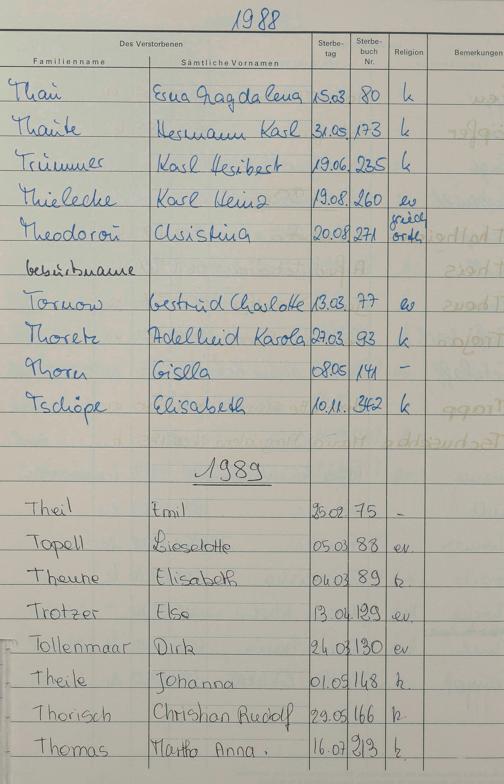 1988
Des Verstorbenen Sterbe- Sterbe-
Familienname Sämtliche Vornamen tag buch Nr. Religion Bemerkungen
Thau Erna Magdalena 15.03. 80 k
Thante Hermann Karl 31.05. 173 k
Trümmer Karl Heribert 19.06. 235 k
Thielecke Karl Heinz 19.08. 260 ev
Theodoroú Christina 20.08. 271 griech orth
Geburtsname
Tornow Gertrud Charlotte 13.03. 77 ev
Thoretz Adelheid Karola 27.03. 93 k
Thorn Gisella 08.05 141 -
Tschöpe Elisabeth 10.11. 342 k
1989
Theil Emil 25.02 75 -
Topell Lieselotte 05.03 88 ev.
Theune Elisabeth 04.03 89 k.
Trotzer Else 13.04. 129 ev.
Tollenmaar Dirk 24.03 130 ev
Theile Johanna 01.05 148 k.
Thorisch Christian Rudolf 29.05 166 k.
Thomas Martha Anna. 16.07 213 k.